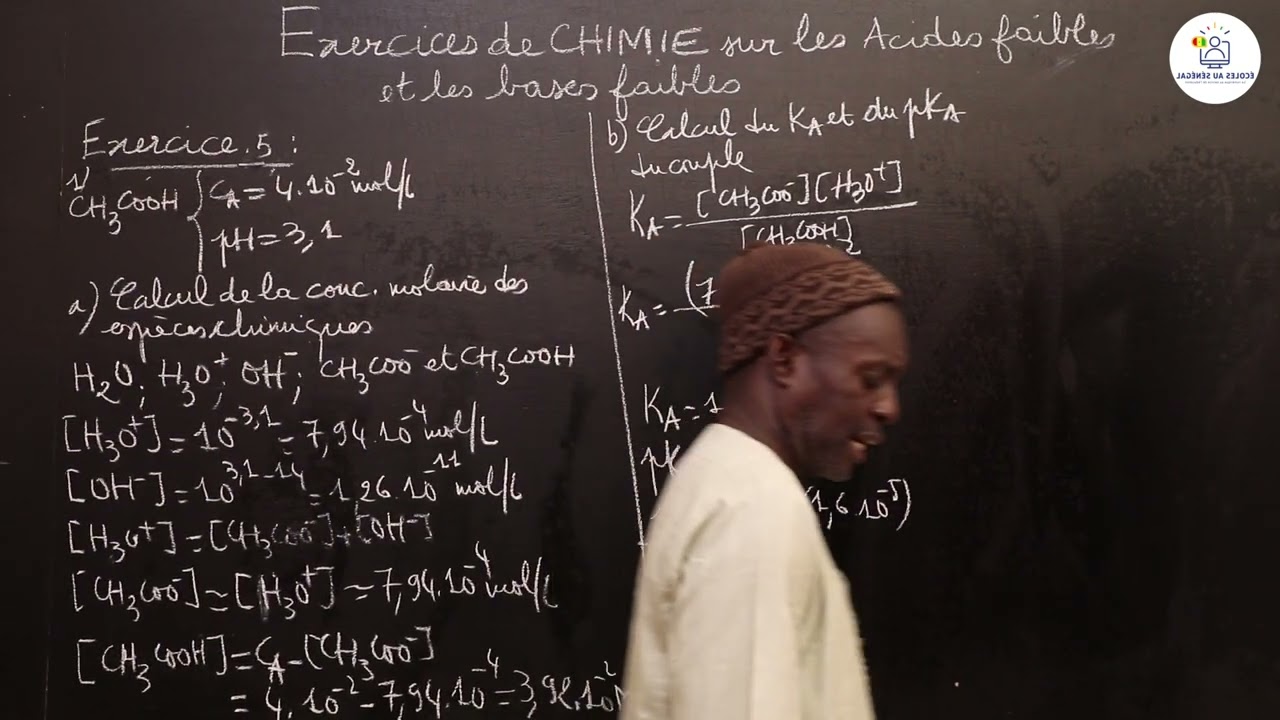 Exercices de CHIMIE sur les Acides faibles
et les bases faibles
ÉCOLES AU SÉNÉGAL
Exercice.5 :
1/
CH₃COOH { C_A = 4.10⁻² mol/L
pH = 3,1
a) Calcul de la conc. molaire des
espèces chimiques
H₂O ; H₃O⁺ ; OH⁻ ; CH₃COO⁻ et CH₃COOH
[H₃O⁺] = 10⁻³,¹ = 7,94.10⁻⁴ mol/L
[OH⁻] = 10³,¹⁻¹⁴ = 1,26.10⁻¹¹ mol/L
[H₃O⁺] = [CH₃COO⁻] + [OH⁻]
[CH₃COO⁻] ≃ [H₃O⁺] ≃ 7,94.10⁻⁴ mol/L
[CH₃COOH] = C_A - [CH₃COO⁻]
= 4.10⁻² - 7,94.10⁻⁴ = 3,92.10⁻²
b) Calcul du K_A et du pK_A
du couple
K_A = [CH₃COO⁻][H₃O⁺]
[CH₃COOH]
K_A = (7
K_A = 1
pK
(1,6.10⁻⁵)